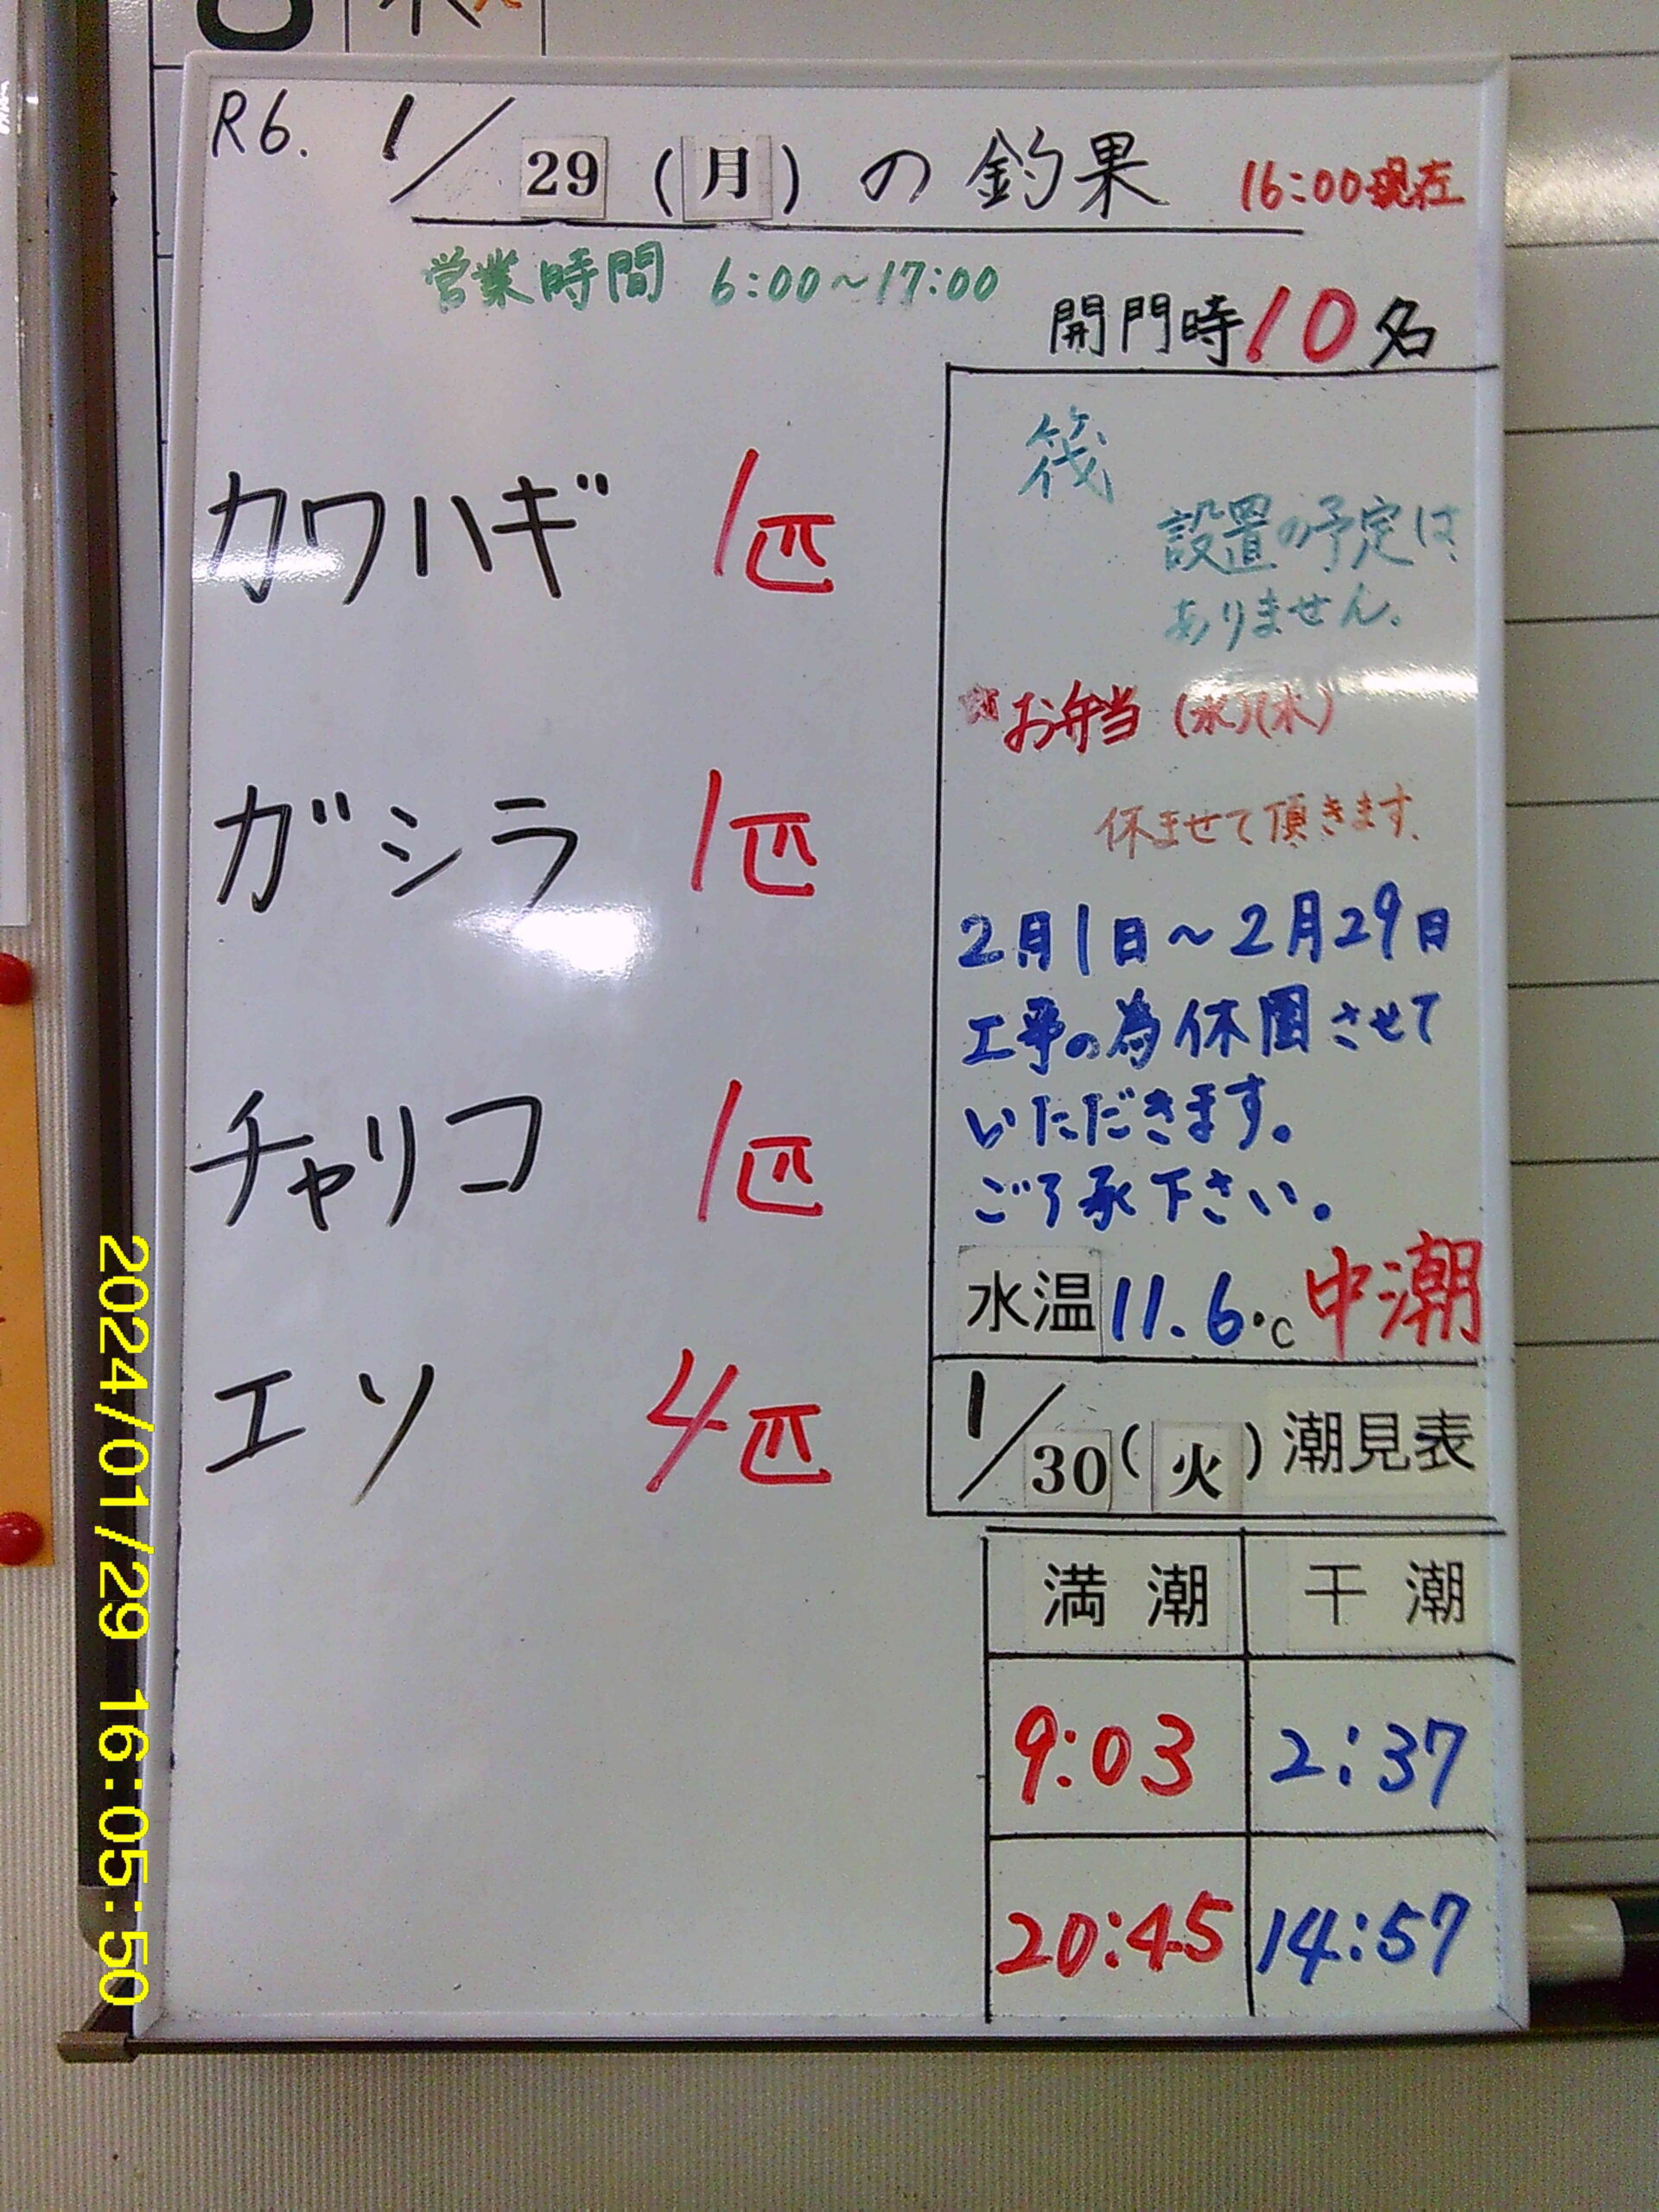 R6. 1/29(月)の釣果 16:00現在
営業時間 6:00~17:00
開門時10名
カワハギ 1匹
ガシラ 1匹
チャリコ 1匹
エソ 4匹
筏
設置の予定は
ありません、
☆お弁当 (水)(木)
休ませて頂きます、
2月1日~2月29日
工事の為休園させて
いただきます。
ご了承下さい。
水温11.6℃ 中潮
1/30(火)潮見表
満潮 干潮
9:03 2:37
20:45 14:57
2024/01/29 16:05:50